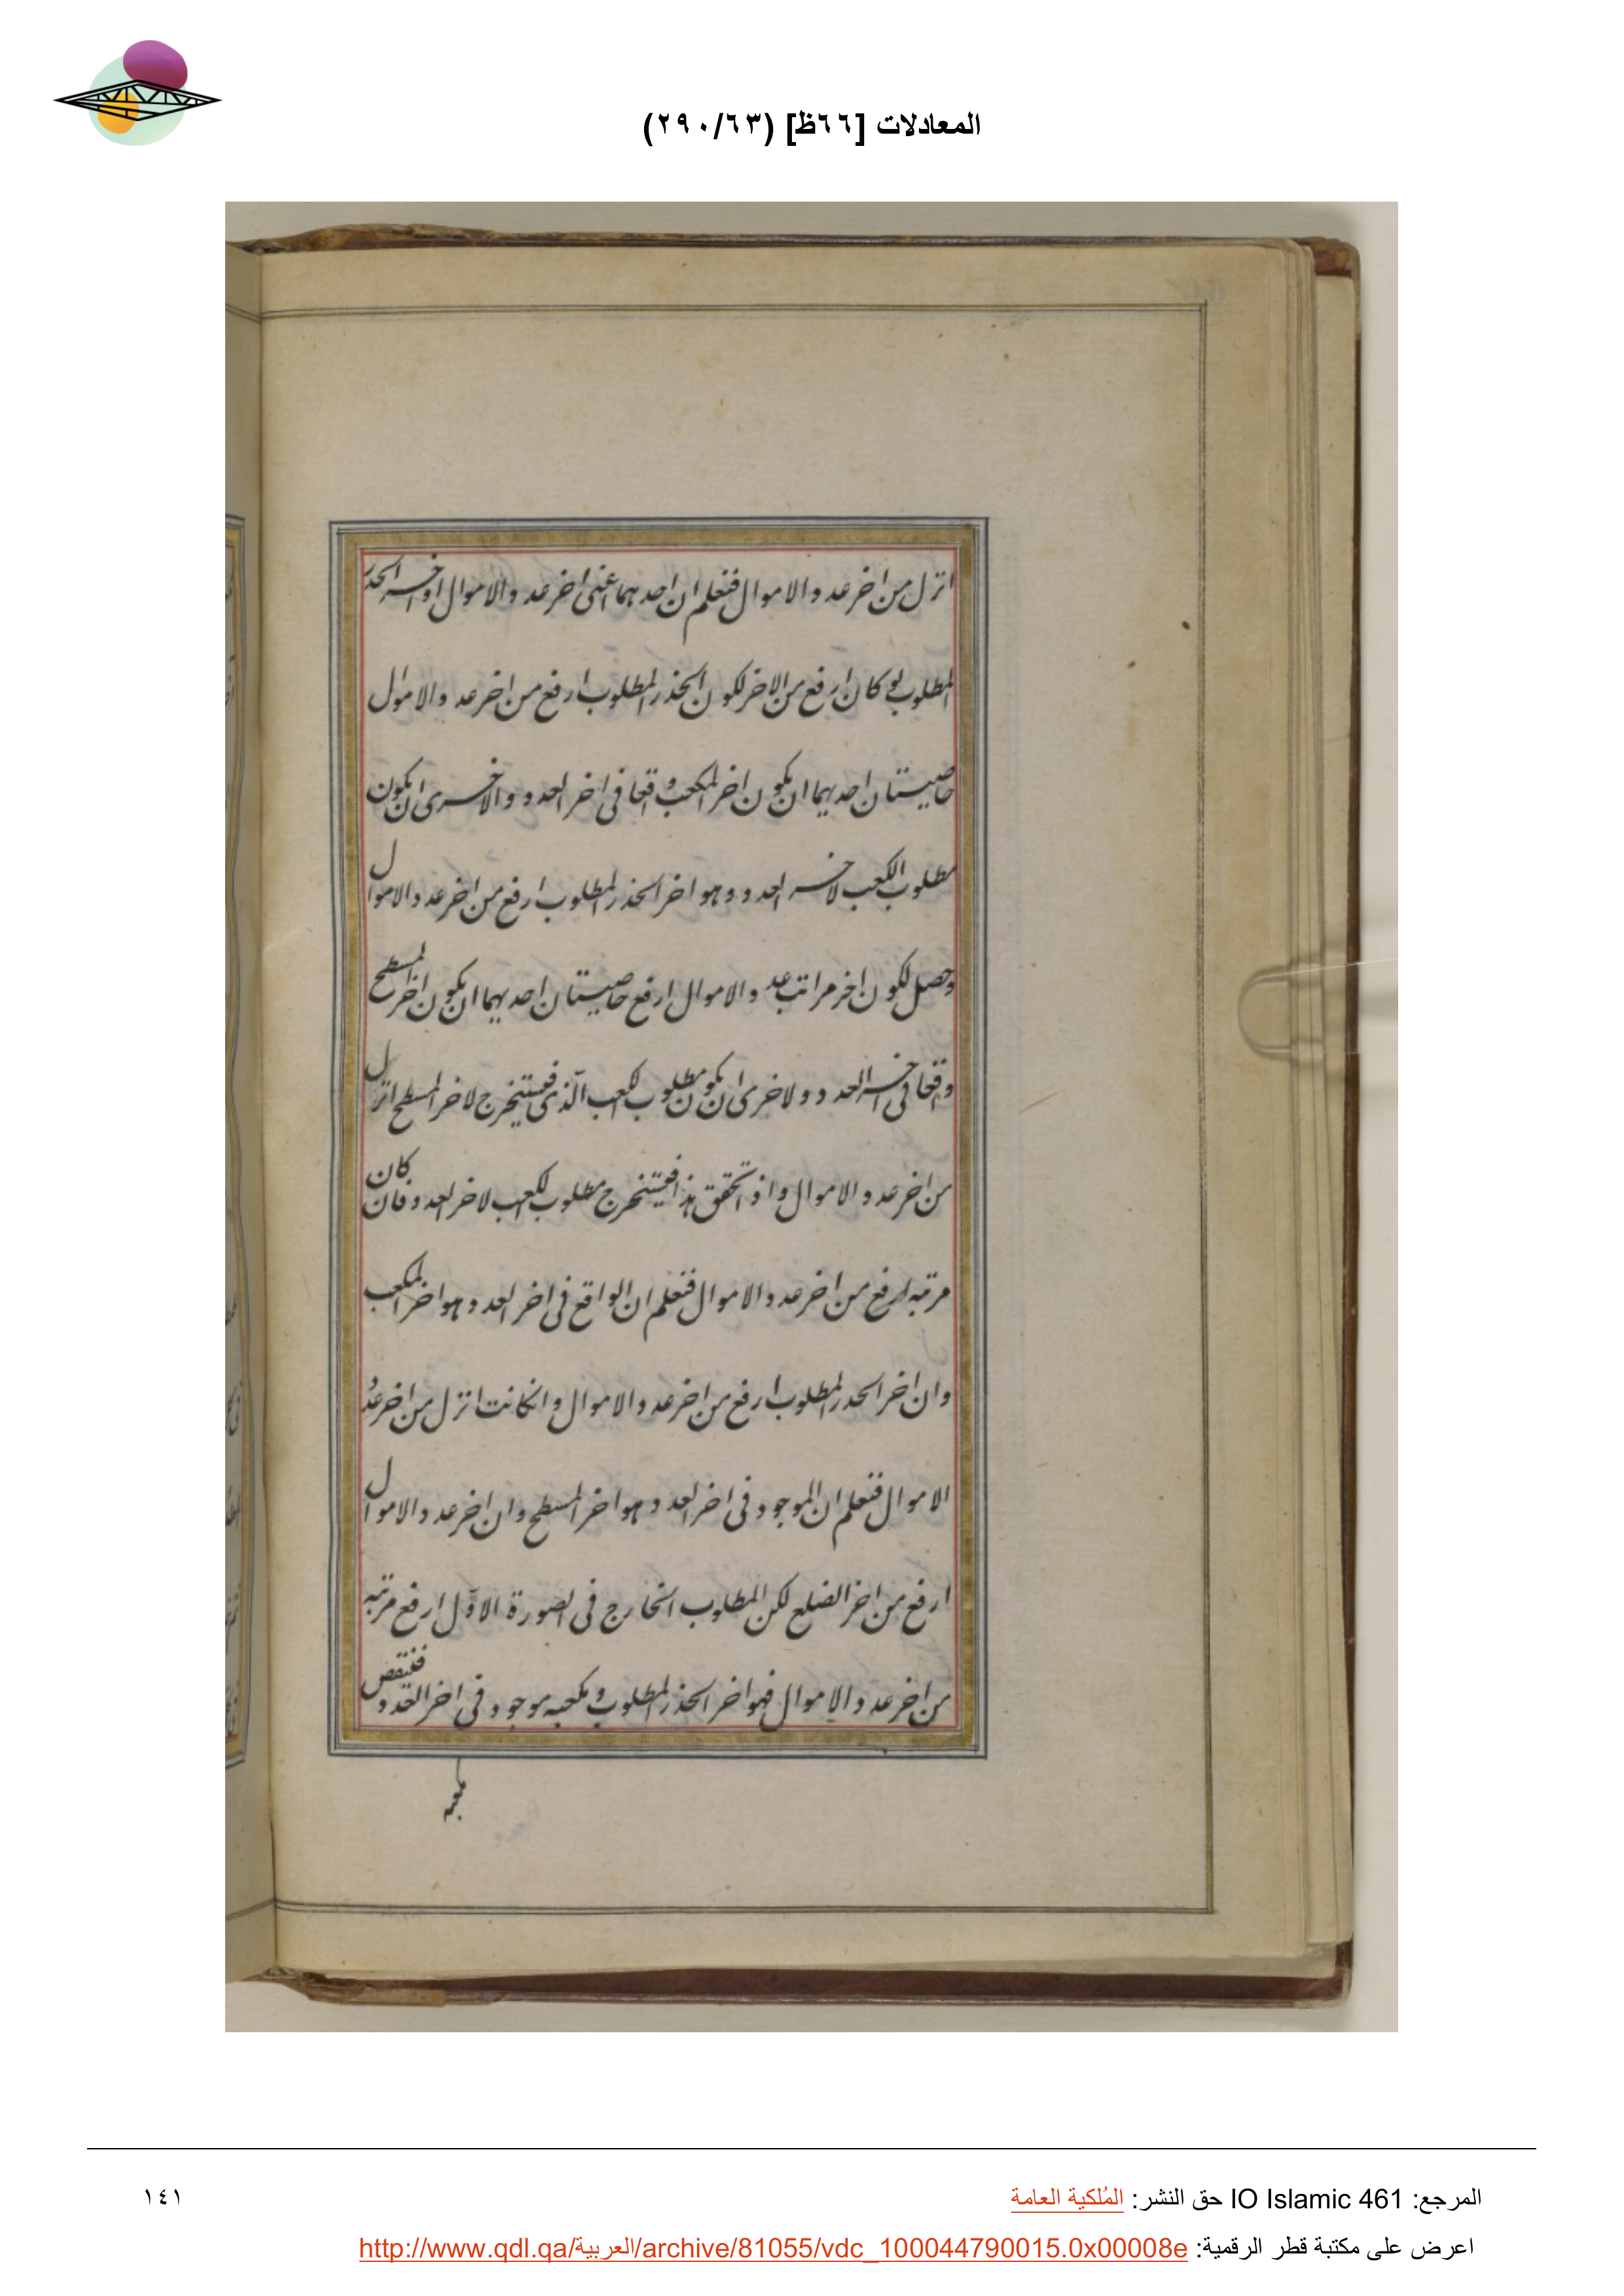 المعادلات [٦٦ظ] (٢٩٠/٦٣)
انزل من اخر عدد الاموال فنعلم ان احدهما اعنى اخر عدد الاموال او اخر الجذر
المطلوب لو كان ارفع من الاخر لكون الجذر المطلوب ارفع من اخر عدد الاموال
خاصيتان احديهما ان يكون اخر المكعب واقعا فى اخر العدد والاخرى ان يكون
مطلوب الكعب لاخر العدد وهو اخر الجذر المطلوب ارفع من اخر عدد الاموال
وحصل لكون اخر مراتب عدد الاموال ارفع خاصيتان احديهما ان يكون اخر المسطح
واقعا فى اخر العدد والاخرى ان يكون مطلوب الكعب الذى فيستخرج لاخر المسطح انزل
من اخر عدد الاموال واذ تحقق هذا فيستخرج مطلوب الكعب لاخر العدد فان كان
مرتبه ارفع من اخر عدد الاموال فنعلم ان الواقع فى اخر العدد هو اخر المكعب
وان اخر الجذر المطلوب ارفع من اخر عدد الاموال وان كانت انزل من اخر عدد
الاموال فنعلم ان الموجود فى اخر العدد هو اخر المسطح وان اخر عدد الاموال
ارفع من اخر الضلع لكن المطلوب الخارج فى الصورة الاول ارفع مرتبه
من اخر عدد الاموال فهو اخر الجذر المطلوب ومكعبه موجود فى اخر العدد فننقص
مكعبه
المرجع: IO Islamic 461 حق النشر: المُلكية العامة
١٤١
اعرض على مكتبة قطر الرقمية: http://www.qdl.qa/العربية/archive/81055/vdc_100044790015.0x00008e